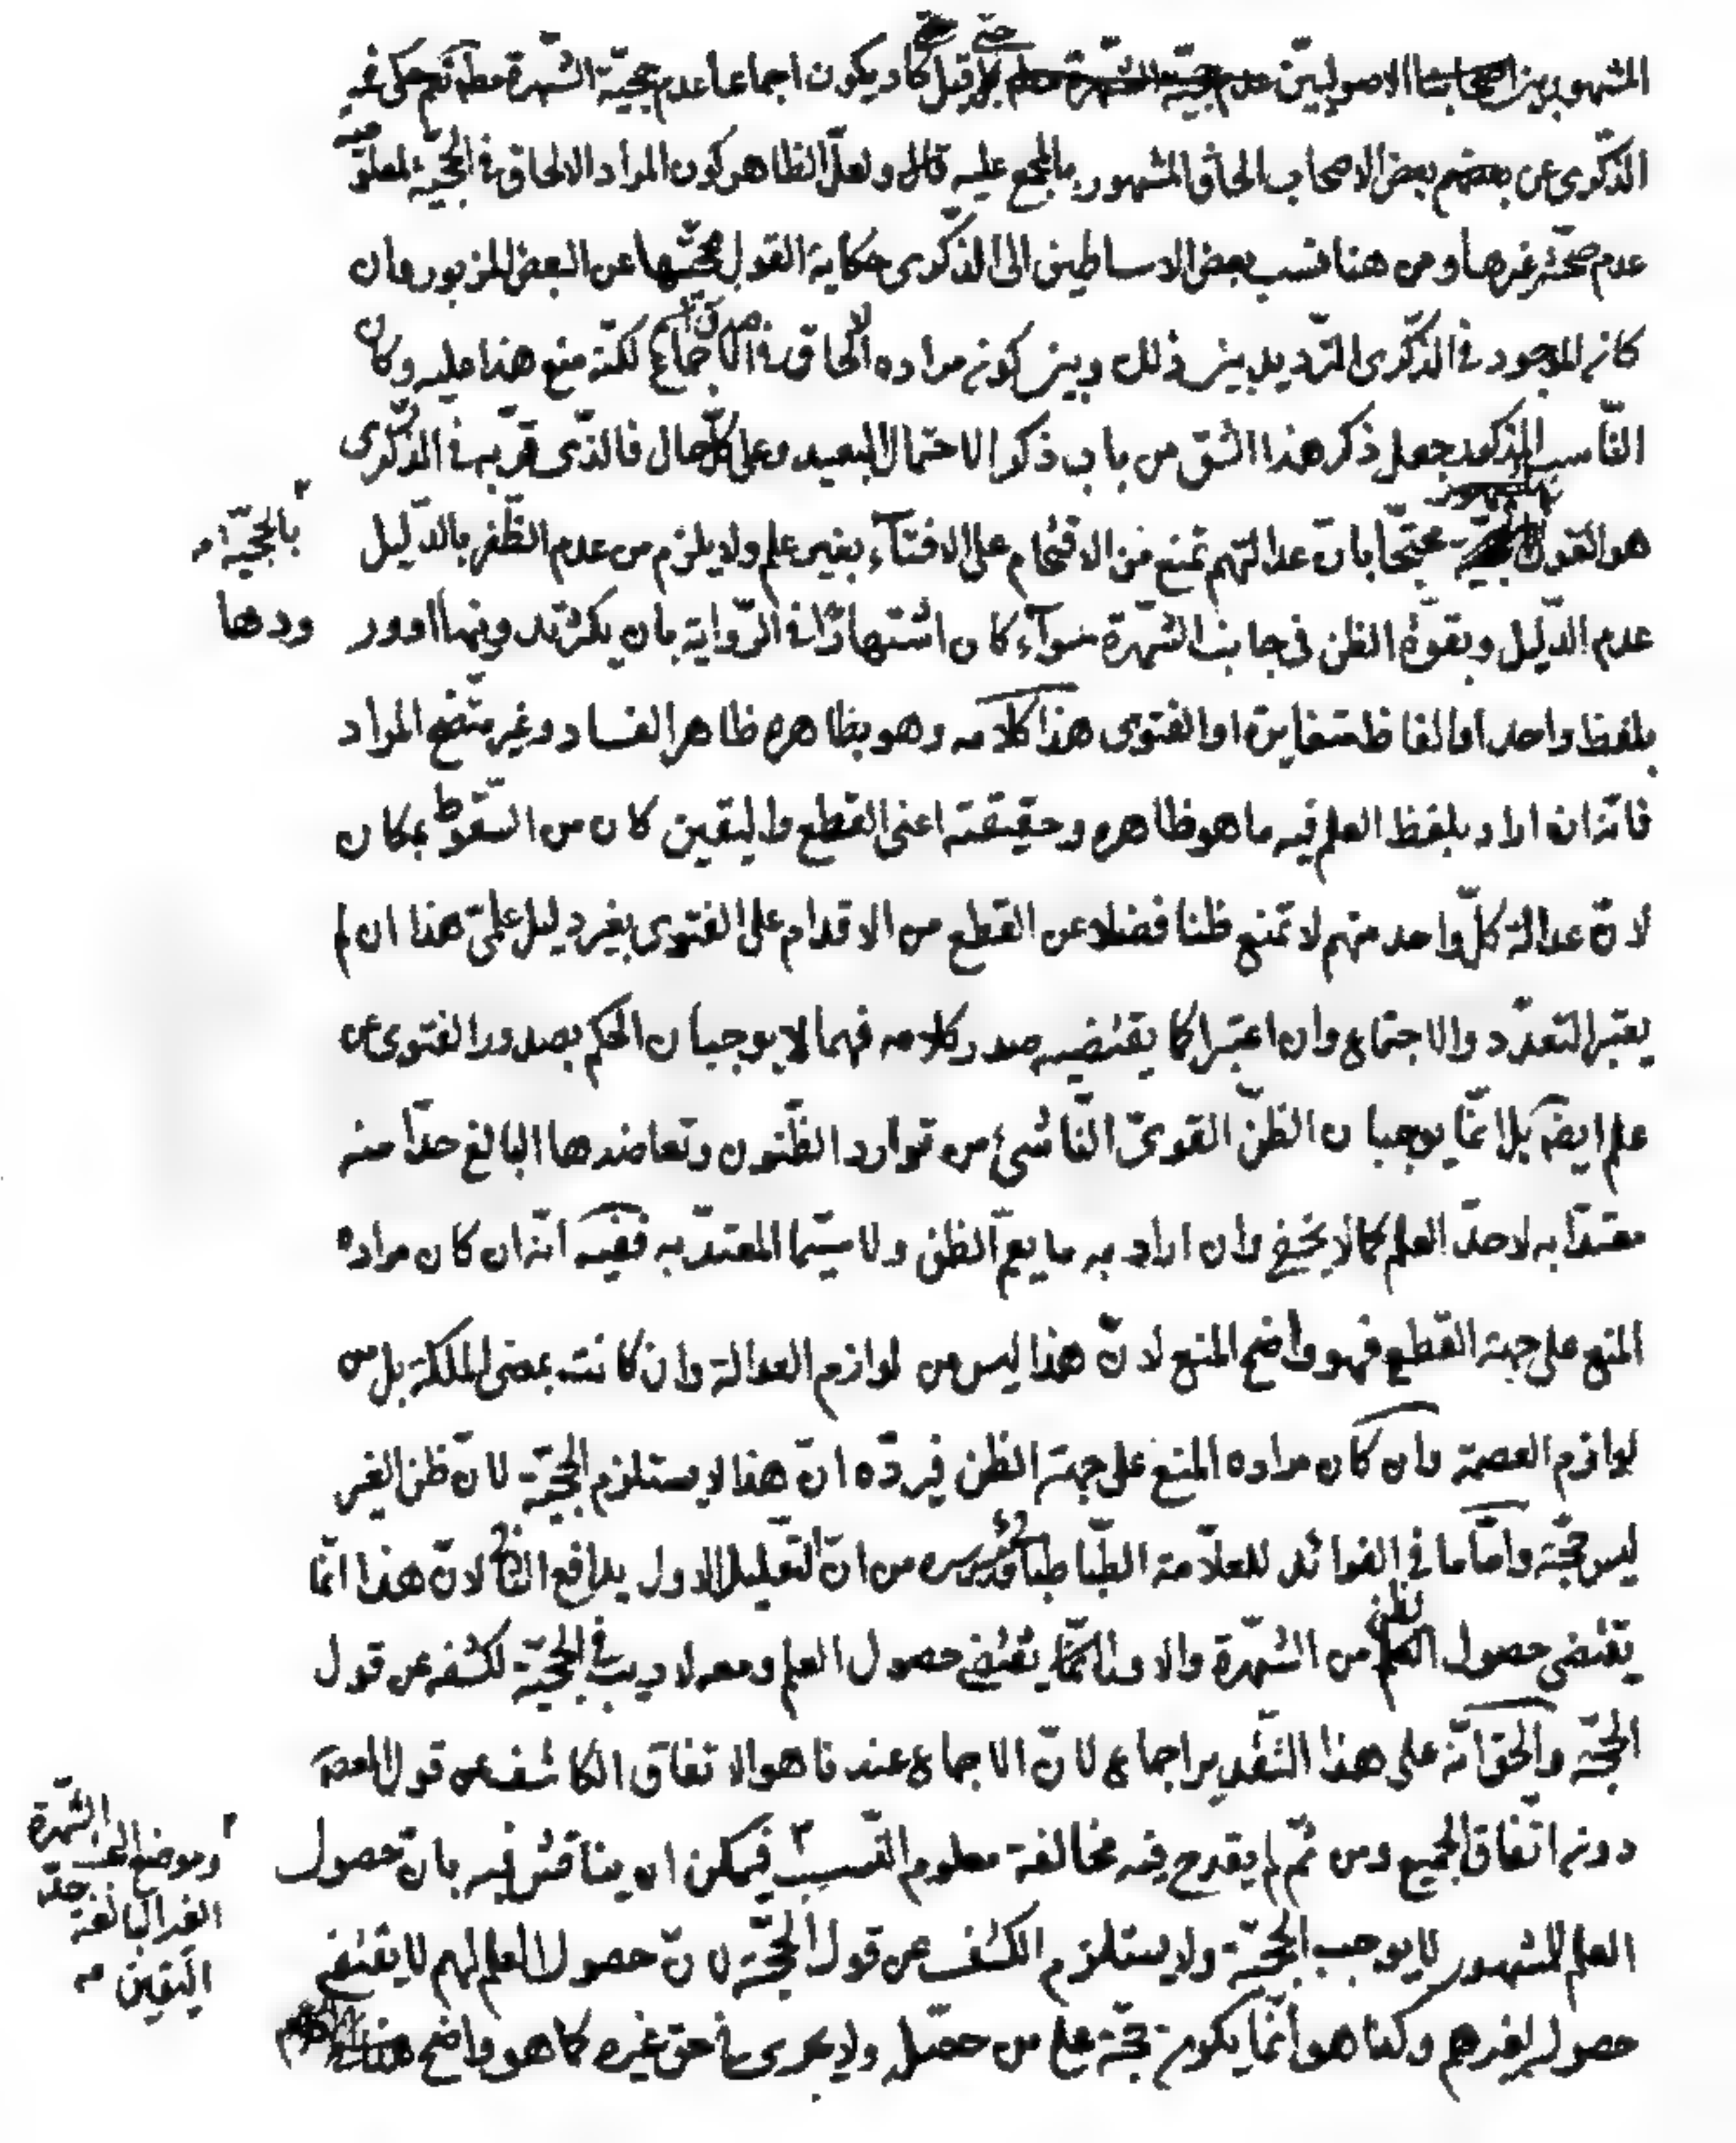 المشهور بين الاصوليين حتى قيل كاد يكون اجماعا عدم حجيّة الشهرة مطلقا نعم حكى في
الذكرى عن بعض الاصحاب الحاق المشهور بالمجمع عليه قال ولعلّ الظاهر كون المراد الالحاق في الحجيّة
عدم صحّة غيرها ومن هنا نسب بعض الاساطين الى الذكرى حكاية القول بحجيّتها عن البعض المزبور وان
كان الموجود في الذكرى الترديد بين ذلك وبين كونه مراده الالحاق في الاجماع لكنّه منع هذا عليه وكان
النّاسب المذكور جعل ذكر هذا الشق من باب ذكر الاحتمال البعيد وعلى كلّ حال فالذى قرّبه في الذكرى
هو القول بالحجيّة محتجّا بانّ عدالتهم تمنع من الاقتحام على الافتاء بغير علم ولا يلزم من عدم الظّفر بالدّليل
عدم الدّليل وبقوّة الظن فى جانب الشهرة سواء كان اشتهارا في الرّواية بان يكثر تدوينها او ورودها
بلفظ واحد او الفاظ متغايرة او الفتوى هذا كلامه وهو بظاهره ظاهر الفساد وغير متّضح المراد
فانّه ان اراد بلفظ العلم فيه ما هو ظاهره وحقيقته اعنى القطع واليقين كان من السّقوط بمكان
لانّ عدالة كلّ واحد منهم لا تمنع ظنا فضلا عن القطع من الاقدام على الفتوى بغير دليل علمىّ هذا ان لم
يعتبر التعدّد والاجتماع وان اعتبرا كما يقتضيه صدر كلامه فهما لا يوجبان الحكم بصدور الفتوى عن
علم ايضا بل انّما يوجبان الظنّ القوىّ النّاشئ من توارد الظّنون وتعاضدها البالغ حدّا منه
معتدّا به لا حدّ العلم كما لا يخفى وان اراد به ما يعمّ الظن ولا سيّما المعتدّ به ففيه انّه ان كان مراده
المنع على جهة القطع فهو واضح المنع لانّ هذا ليس من لوازم العدالة وان كانت بمعنى الملكة بل من
لوازم العصمة وان كان مراده المنع على جهة الظن فيردّه انّ هذا لا يستلزم الحجيّة لانّ ظن الغير
ليس حجّة وامّا ما في الفوائد للعلّامة الطّباطبائي قدس سره من انّ التعليل الاول يدافع الثاني لانّ هذا انّما
يقتضى حصول الظن من الشهرة والاول انّما يقتضى حصول العلم ومعه لا ريب في الحجيّة لكشفه عن قول
الحجّة والحق انّه على هذا التقدير اجماع لانّ الاجماع عندنا هو الاتفاق الكاشف عن قول المعصوم
دون اتّفاق الجميع ومن ثمّ لم يقدح فيه مخالفة معلوم النّسب فيمكن ان يناقش فيه بانّ حصول
وموضع البحث الشهرة
الغير البالغة حدّ
اليقين
العلم للمشهور لا يوجب الحجيّة ولا يستلزم الكشف عن قول الحجّة لانّ حصول العلم لهم لا يقتضى
حصوله لغيرهم وكما هو انّما يكون حجّة على من حصّله ولا يجرى في حق غيره كما هو واضح